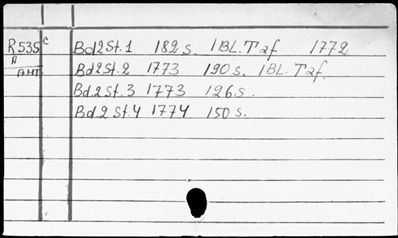 R535 c Bd2St.1 182s. 1BL.Taf 1772
A
AHT. Bd2St.2 1773 190s. 1BL.Taf.
Bd.2 St.3 1773 126s.
Bd.2 St.4 1774 150s.